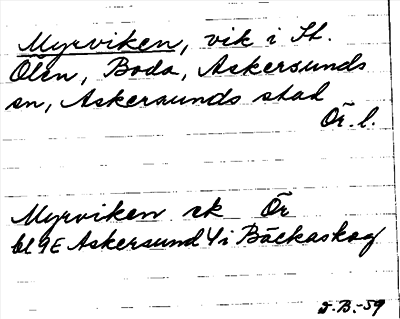 Myrviken, vik i St.
Ölen, Boda, Askersunds
sn, Askersunds stad
Ör. l.
Myrviken sk Ör
bl 9E Askersund 4i Bäckaskog
J.B.-59